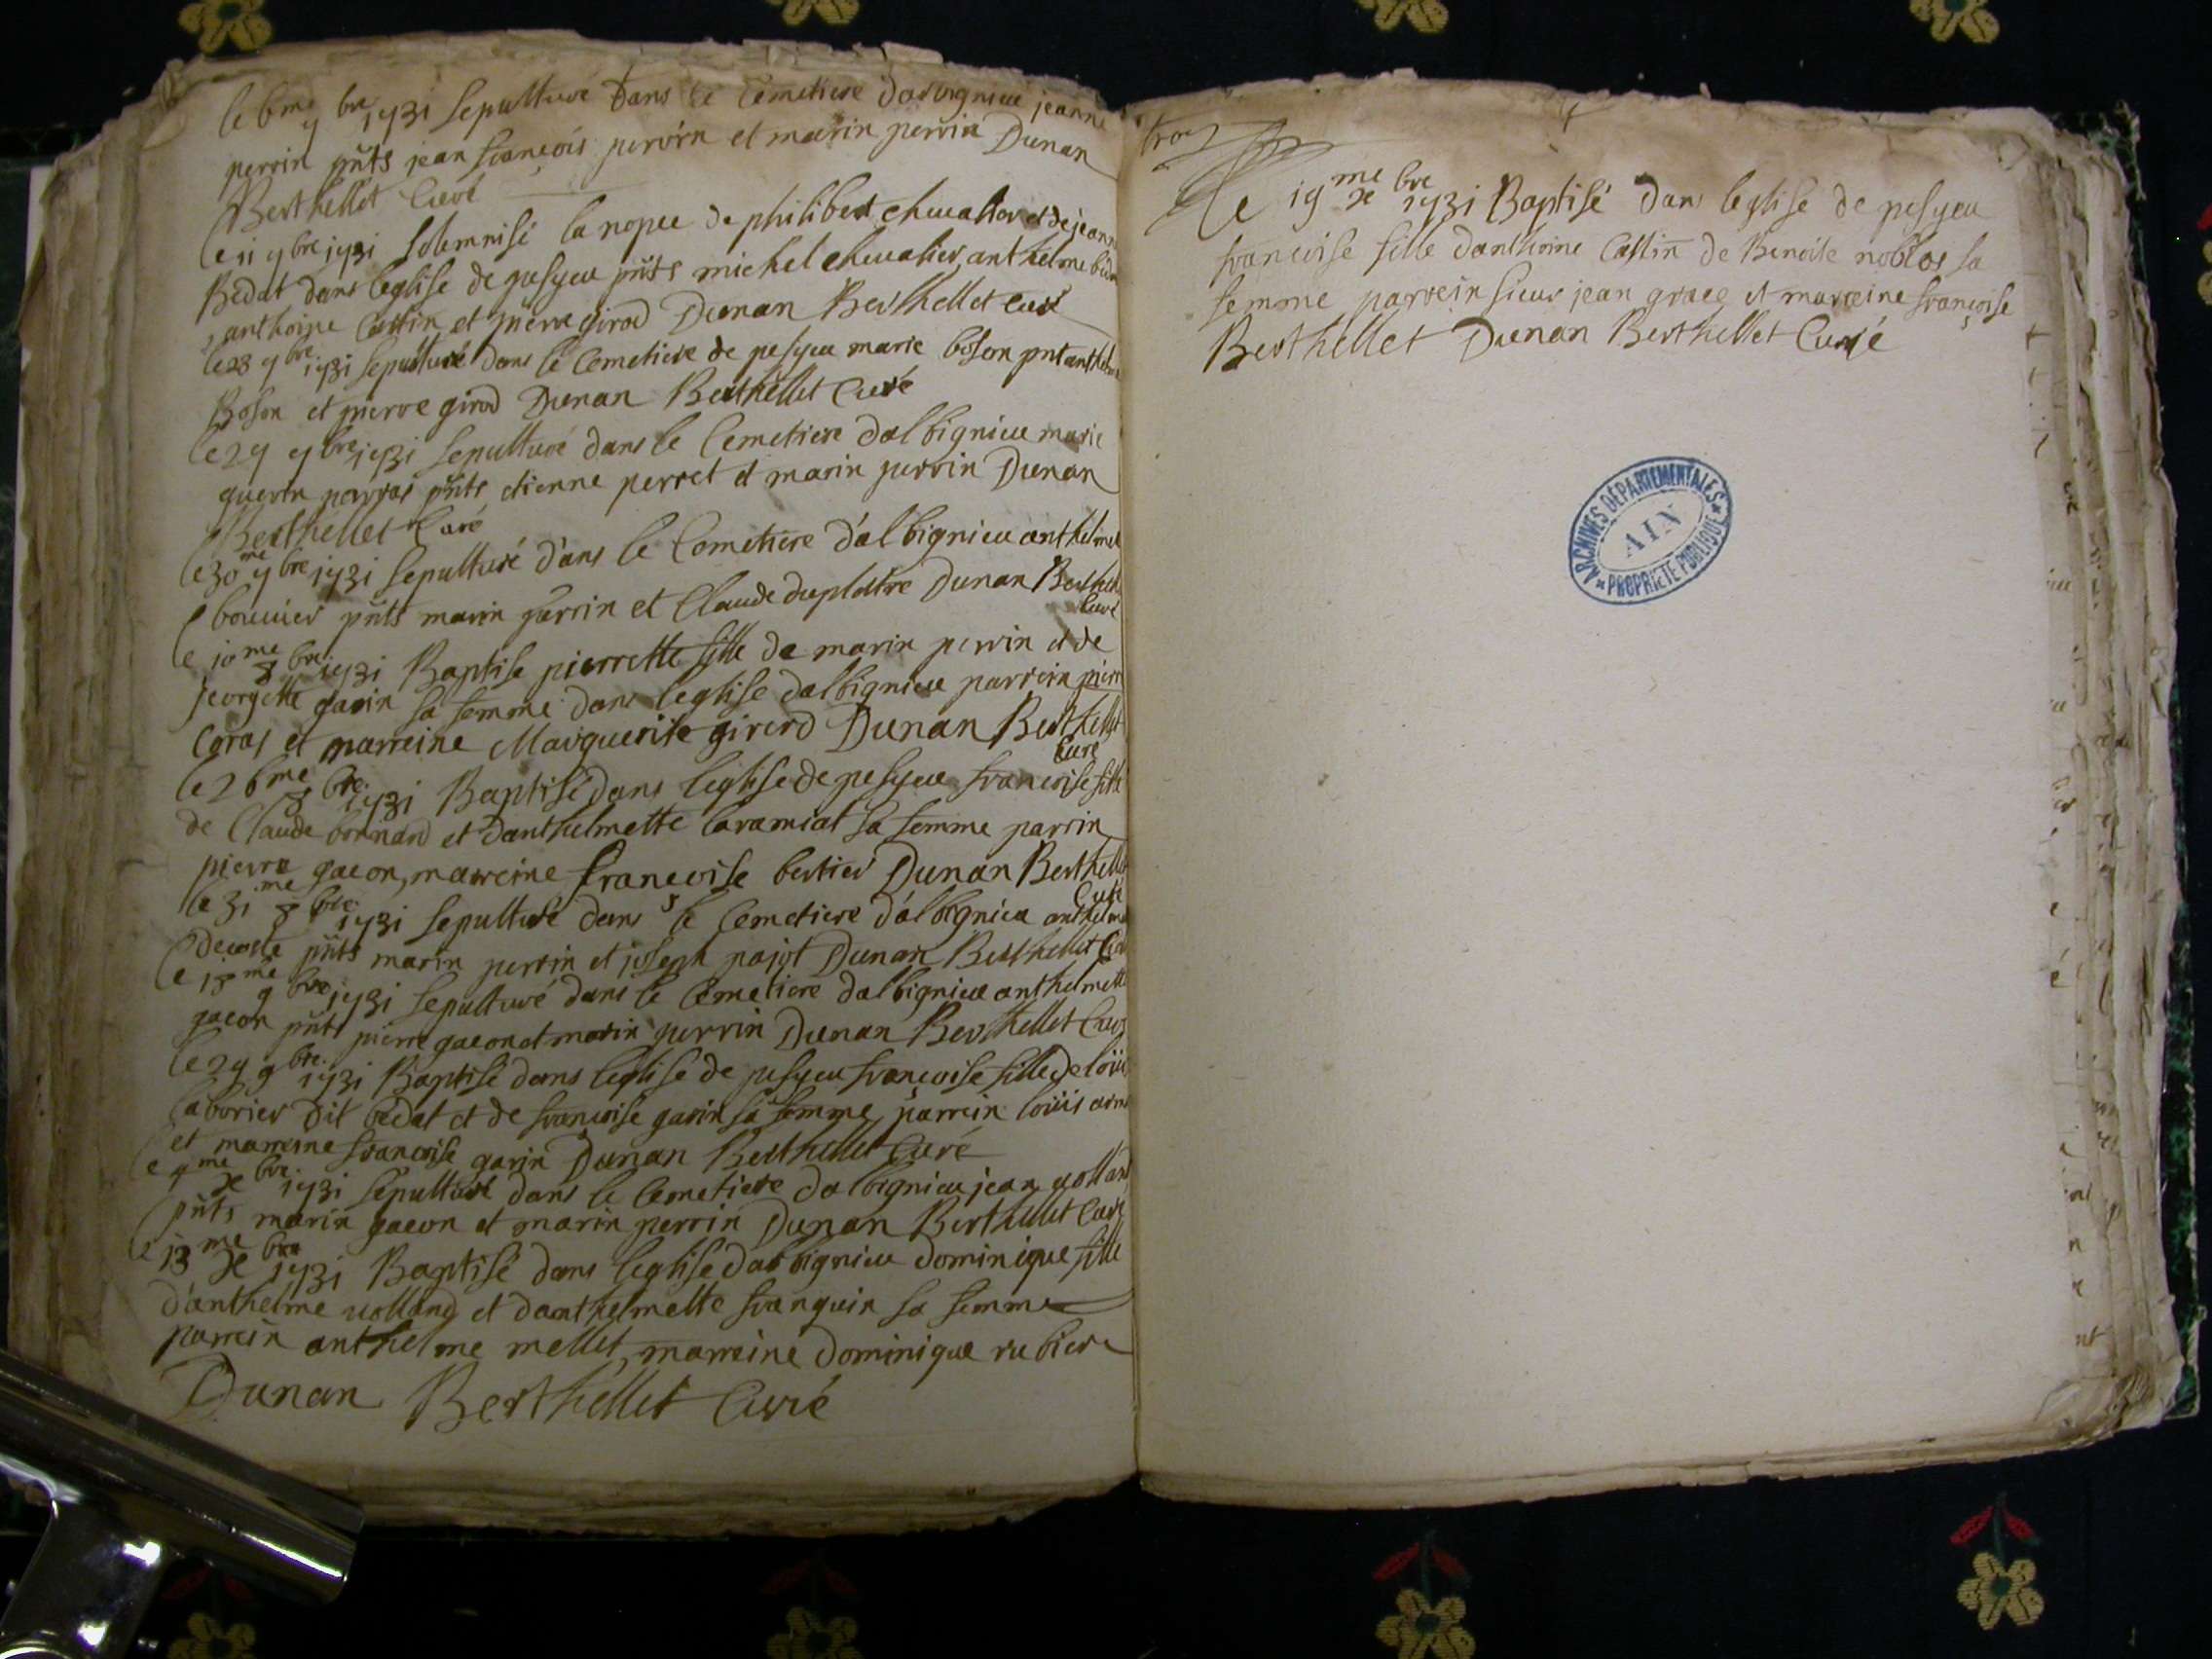 le 6me 7bre 1731 sepulturé dans le Cemetiere dalbignieu jeanne
perrin pnts jean francois perrin et marin perrin Dunan
Berthellet Curé
le 11 7bre 1731 solemnisé la nopce de philibert chevalier et de jeanne
Bedat dans leglise de pesyeu pnts michel chevalier, anthelme
anthoine Castin et pierre girod Dunan Berthellet Curé
le 28 7bre 1731 sepulturé dans le Cemetiere de pesyeu marie boson pnt anthelme
Boson et pierre girod Dunan Berthellet Curé
le 29 7bre 1731 sepulturé dans le Cemetiere dalbignieu marie
perras pnts etienne perret et marin perrin Dunan
Berthellet Curé
le 30me 7bre 1731 sepulturé dans le Cometiere d'albignieu anthelme
bouvier pnts marin perrin et Claude duplatre Dunan Berthellet
Curé
le 10me 8bre 1731 Baptise pierrette fille de marin perrin et de
jeorgette garin sa femme dans leglise dalbignieu parrein pierre
Coras et marreine Marguerite girerd Dunan Berthellet
Curé
le 26me 8bre 1731 Baptisé dans leglise de pesyeu francoise fille
de Claude bonnard et danthelmette Caramiat sa femme parrin
pierre gacon, marreine françoise bertier Dunan Berthellet
Curé
le 31me 8bre 1731 sepulturé dans le Cemetiere d'albignieu anthelme
pnts marin perrin et joseph pajot Dunan Berthellet Curé
le 18me 9bre 1731 sepulturé dans le Cemetiere dalbignieu anthelmette
gacon pnts pierre gacon et marin perrin Dunan Berthellet Curé
le 29 9bre 1731 Baptisé dans leglise de pesyeu françoise fille de loüis
laborier dit bedat et de françoise garin sa femme, parrein loüis
et marreine francoise garin Dunan Berthellet Curé
le 4me Xbre 1731 sepulturé dans le Cemetiere dalbignieu jean volland
pnts marin gacon et marin perrin Dunan Berthellet Curé
le 13me Xbre 1731 Baptisé dans leglise dalbignieu dominique fille
d'anthelme volland et danthelmette franquin sa femme
parrein anthelme mellet, marreine dominique rubiere
Dunan Berthellet Curé
troy
Le 19me Xbre 1731 Baptisé dans leglise de pesyeu
francoise fille danthoine Castin de Benoite noblos sa
femme parrein sieur jean grace et marreine françoise
Berthellet Dunan Berthellet Curé
ARCHIVES DÉPARTEMENTALES
AIN
PROPRIÉTÉ PUBLIQUE